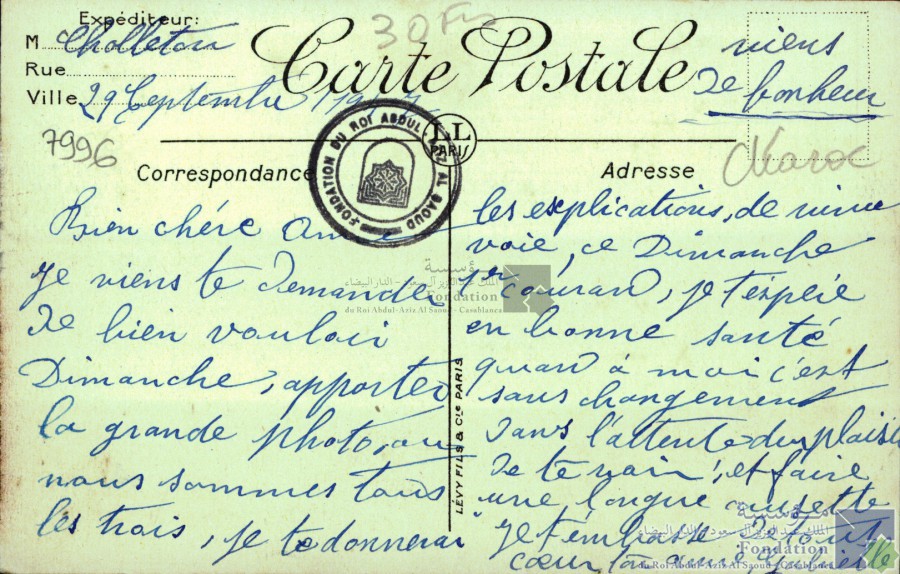 Expéditeur:
M Cholleton
Rue
Ville 29 Septembre
30 Frs
Carte Postale
viens
de bonheur
7996
LL
PARIS
FONDATION DU ROI ABDUL AZIZ AL SAOUD
Maroc
Correspondance
Adresse
Bien chére Amie
Je viens te demander
de bien vouloir
Dimanche, apporter
la grande photo, ou
nous sommes tous
les trois, je te donnerai
LÉVY FILS & Cie PARIS
les explications, de vive
voie, ce Dimanche
1er courant, je t'espére
en bonne santé
quand à moi c'est
sans changement
dans l'attente du plaisir
de te voir, et faire
une longue causette
Je t'embrasse de tout
cœur ton amie
مؤسسة
الملك عبد العزيز آل سعود - الدار البيضاء
Fondation
du Roi Abdul-Aziz Al Saoud - Casablanca
مؤسسة
الملك عبد العزيز آل سعود - الدار البيضاء
Fondation
du Roi Abdul-Aziz Al Saoud - Casablanca